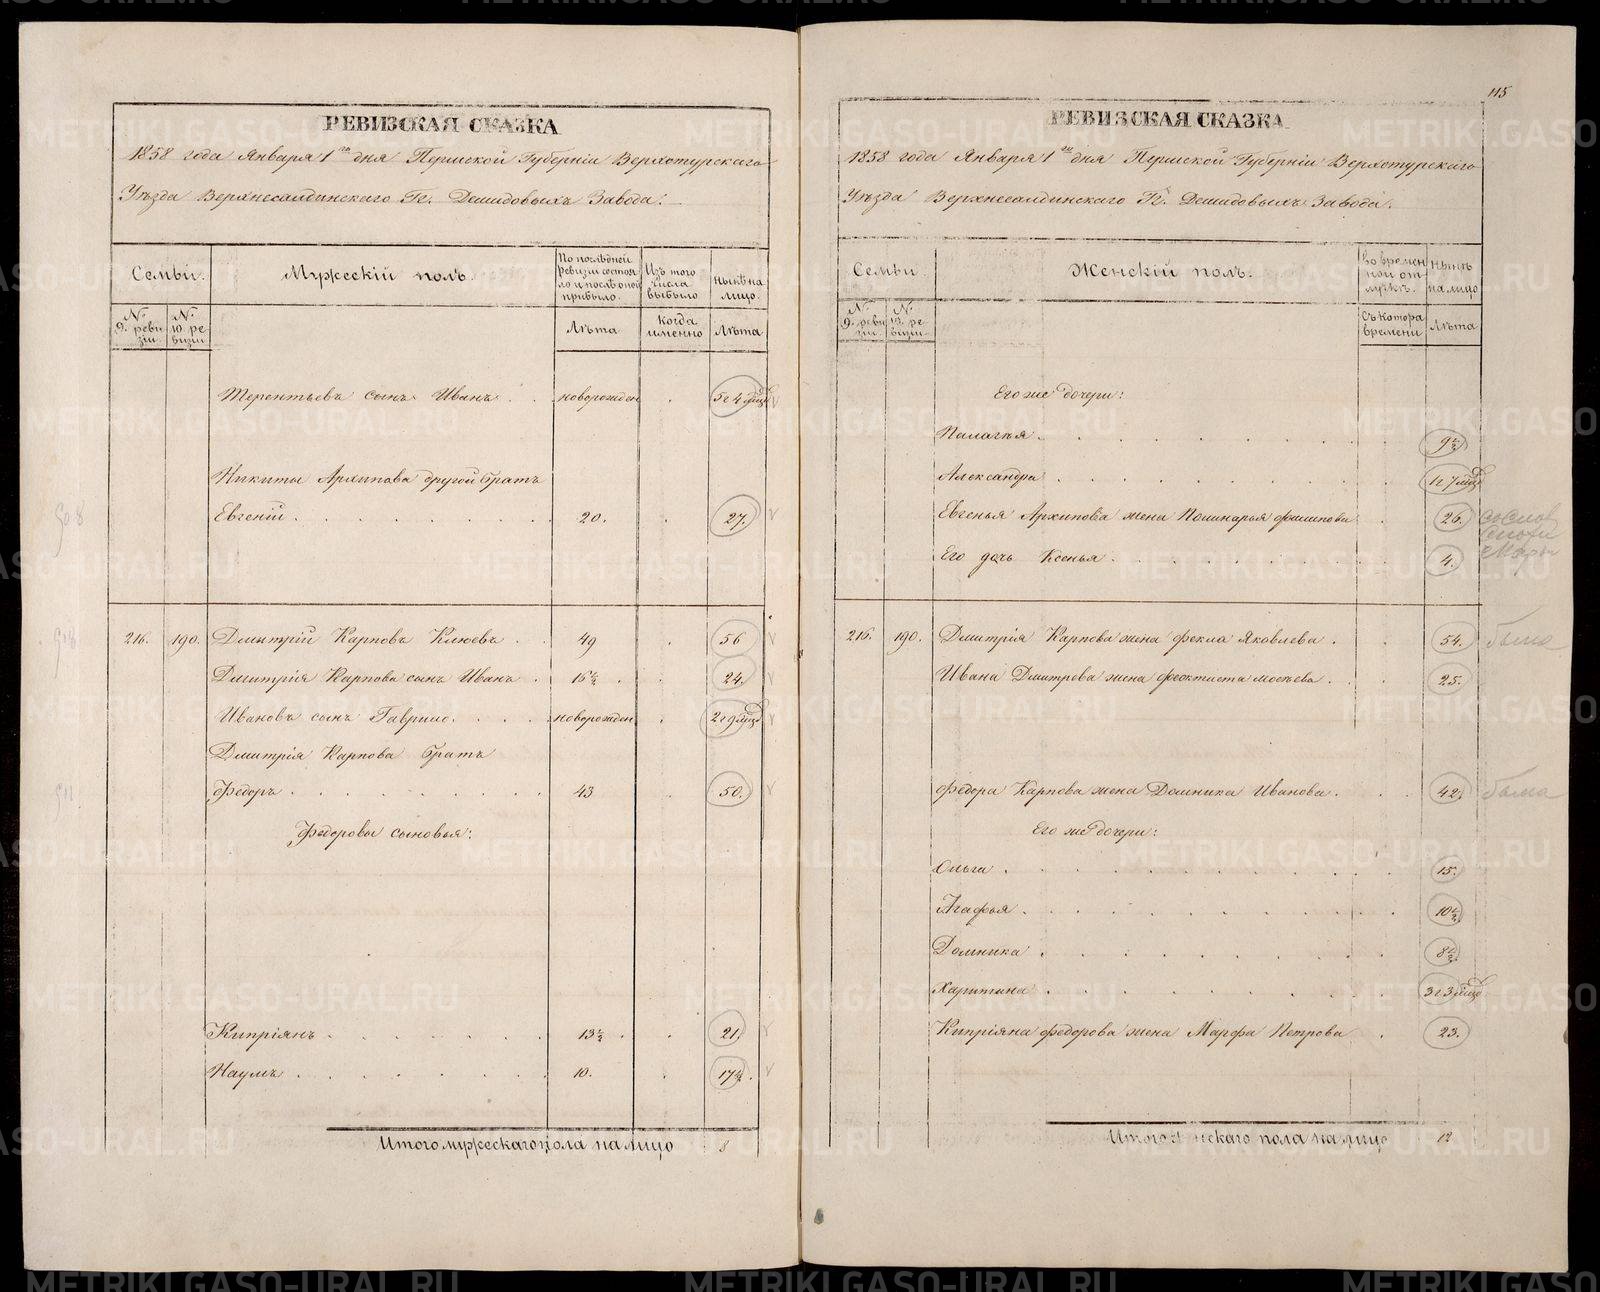 115
РЕВИЗСКАЯ СКАЗКА
1858 года Января 1го дня Пермской Губерніи Верхотурскаго
Уѣзда Верхнесалдинскаго Гг. Демидовыхъ Завода.
Семьи.
Мужескій полъ.
По послѣдней ревизіи состояло и послѣ оной прибыло.
Изъ того числа выбыло
Нынѣ на лицо.
№ 9. ревизіи
№ 10 ревизіи
Лѣта
Когда именно
Лѣта
Терентьевъ сынъ Иванъ . . новорожден . 5 г 4 мцд
Никиты Архипова другой братъ
Евгеній . . . . . . . . 20. . 27.
216. 190. Дмитрій Карповъ Клюевъ . 49 . 56
Дмитрія Карпова сынъ Иванъ . 16½ . . 24.
Ивановъ сынъ Гаврило . . . новорожден . 2 г 9 мцд
Дмитрія Карпова братъ
Федоръ . . . . . . . . 43 . 50.
Федоровы сыновья:
Кипріянъ . . . . . . 13½ . . 21.
Наумъ . . . . . . . 10. . 17½.
Итого мужескаго пола на лицо 8
РЕВИЗСКАЯ СКАЗКА
1858 года Января 1го дня Пермской Губерніи Верхотурскаго
Уѣзда Верхнесалдинскаго Гг. Демидовыхъ Завода.
Семьи
Женскій полъ.
Во временной отлучкѣ.
Нынѣ на лицо
№ 9. ревизіи
№ 10. ревизіи
Съ котора времени
Лѣта
Его же дочери:
Палагѣя . . . . . . . . 9½
Александра . . . . . . . . 1 г 7 мцд
Евгенья Архипова жена Поликарья Филипова . 26.
Его дочь Ксенья . . . . . . . 4.
216. 190. Дмитрія Карпова жена Фекла Яковлева . . 54. была
Ивана Дмитрева жена Феоктиста Мосѣева . . 25.
Федора Карпова жена Домника Иванова . . . 42. была
Его же дочери:
Ольга . . . . . . . . 15.
Агафья . . . . . . . . 10½
Домника . . . . . . . . 8½
Харитина . . . . . . . . 3 г 3 мцд
Кипріяна Федорова жена Марфа Петрова . 23.
Итого женскаго пола на лицо 12
METRIKI.GASO-URAL.RU